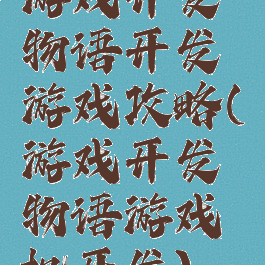 游戏开发
物语开发
游戏攻略(
游戏开发
物语游戏
机开发)